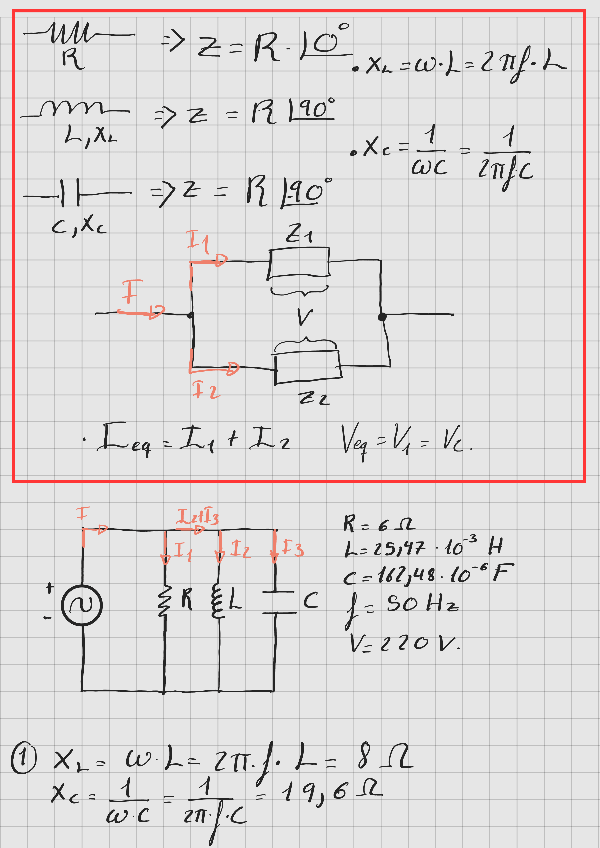 R => Z = R · |0°
· XL = ω · L = 2πf · L
L, XL => Z = R |90°
· Xc = 1/ωC = 1/2πfC
C, Xc => Z = R |-90°
I1 Z1
I
V
I2 Z2
· Ieq = I1 + I2 Veq = V1 = Vc.
I I2+I3
I1 I2 I3
+ - R L C
R = 6 Ω
L = 25,47 · 10^-3 H
C = 162,48 · 10^-6 F
f = 50 Hz
V = 220 V.
① XL = ω · L = 2π · f · L = 8 Ω
Xc = 1/ω·C = 1/2π·f·C = 19,6 Ω